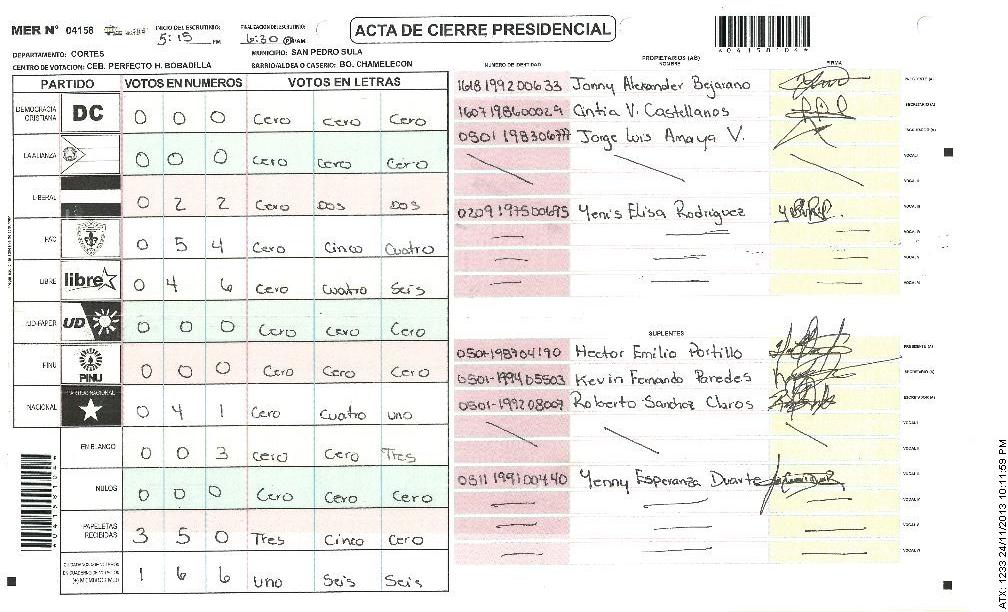 MER Nº 04158 INICIO DEL ESCRUTINIO: 5:15 PM FINALIZACION DEL ESCRUTINIO: 6:30 PM/AM
ACTA DE CIERRE PRESIDENCIAL
DEPARTAMENTO: CORTES MUNICIPIO: SAN PEDRO SULA
CENTRO DE VOTACION: CEB. PERFECTO H. BOBADILLA BARRIO/ALDEA O CASERIO: BO. CHAMELECON
PARTIDO VOTOS EN NUMEROS VOTOS EN LETRAS
DEMOCRACIA CRISTIANA DC 0 0 0 Cero Cero Cero
LA ALIANZA 0 0 0 Cero Cero Cero
LIBERAL 0 2 2 Cero Dos Dos
PAC 0 5 4 Cero Cinco Cuatro
LIBRE libre 0 4 6 Cero Cuatro Seis
UD-FAPER UD 0 0 0 Cero Cero Cero
PINU PINU 0 0 0 Cero Cero Cero
NACIONAL PARTIDO NACIONAL 0 4 1 Cero Cuatro uno
EN BLANCO 0 0 3 Cero Cero Tres
NULOS 0 0 0 Cero Cero Cero
PAPELETAS RECIBIDAS 3 5 0 Tres Cinco Cero
1 6 6 uno Seis Seis
PROPIETARIOS (AS)
NUMERO DE IDENTIDAD NOMBRE FIRMA
1618 1992 00633 Jonny Alexander Bejarano PRESIDENTE (A)
1607 1986 00029 Cintia V. Castellanos SECRETARIO (A)
0501 1983 06777 Jorge Luis Amaya V. ESCRUTADOR (A)
VOCAL I
VOCAL II
0209 1975 00695 Yenis Elisa Rodriguez VOCAL III
VOCAL IV
VOCAL V
VOCAL VI
SUPLENTES
0501-1987 04190 Hector Emilio Portillo PRESIDENTE (A)
0501-1994 05503 Kevin Fernando Paredes SECRETARIO (A)
0501-1992 08007 Roberto Sanchez Claros ESCRUTADOR (A)
VOCAL I
VOCAL II
0511 1991 00440 Yenny Esperanza Duarte VOCAL III
VOCAL IV
VOCAL V
VOCAL VI
ATX: 1233 24/11/2013 10:11:59 PM